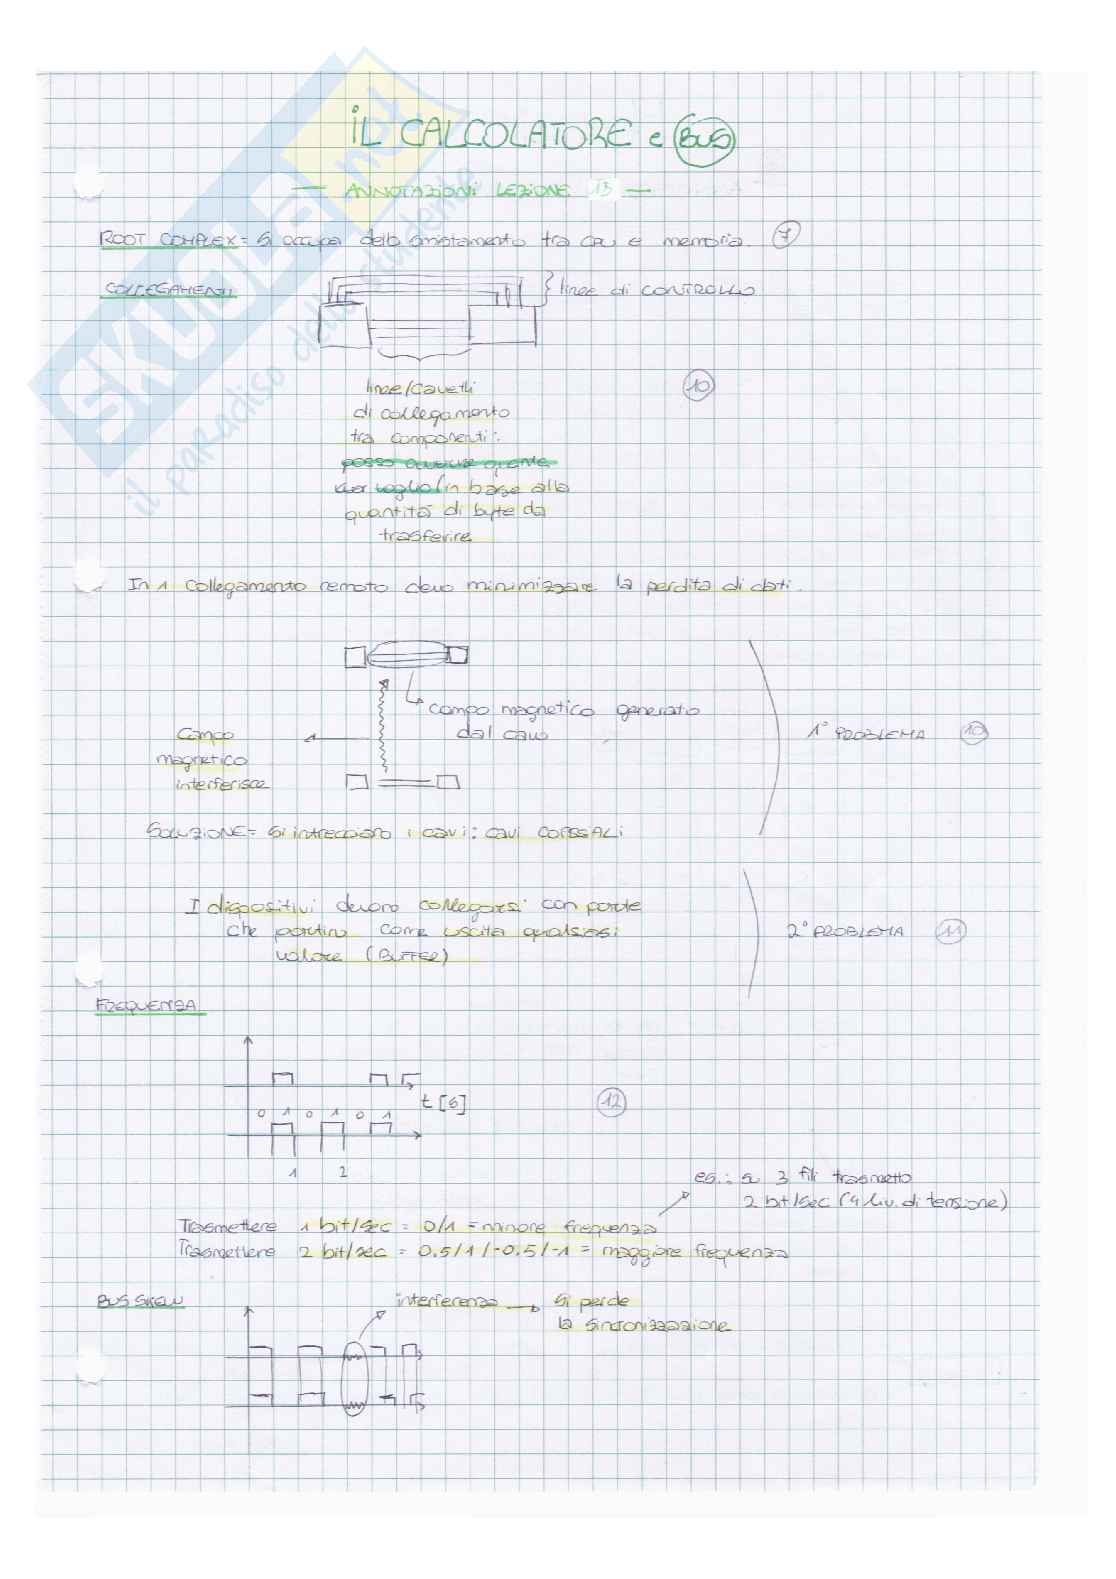 IL CALCOLATORE e BUS
— ANNOTAZIONI LEZIONE 13 —
ROOT COMPLEX = si occupa dello smistamento tra CPU e memoria. 7
COLLEGAMENTI
linee di CONTROLLO
linee/cavetti
di collegamento
tra componenti:
posso averne quante
ne voglio/in base alla
quantità di byte da
trasferire
10
In 1 collegamento remoto devo minimizzare la perdita di dati.
campo magnetico generato
dal cavo
Campo
magnetico
interferisce
1° PROBLEMA 10
SOLUZIONE = si intrecciano i cavi: cavi COASSALI
I dispositivi devono collegarsi con porte
che portino come uscita qualsiasi
valore (BUFFER)
2° PROBLEMA 11
FREQUENZA
t [s]
0 1 0 1 0 1
1 2
12
es.: su 3 fili trasmetto
2 bit/sec (4 liv. di tensione)
Trasmettere 1 bit/sec = 0/1 = minore frequenza
Trasmettere 2 bit/sec = 0.5/1/-0.5/-1 = maggiore frequenza
BUS SKEW
interferenza → si perde
la sincronizzazione
SKUOLA.net
il paradiso dello studente